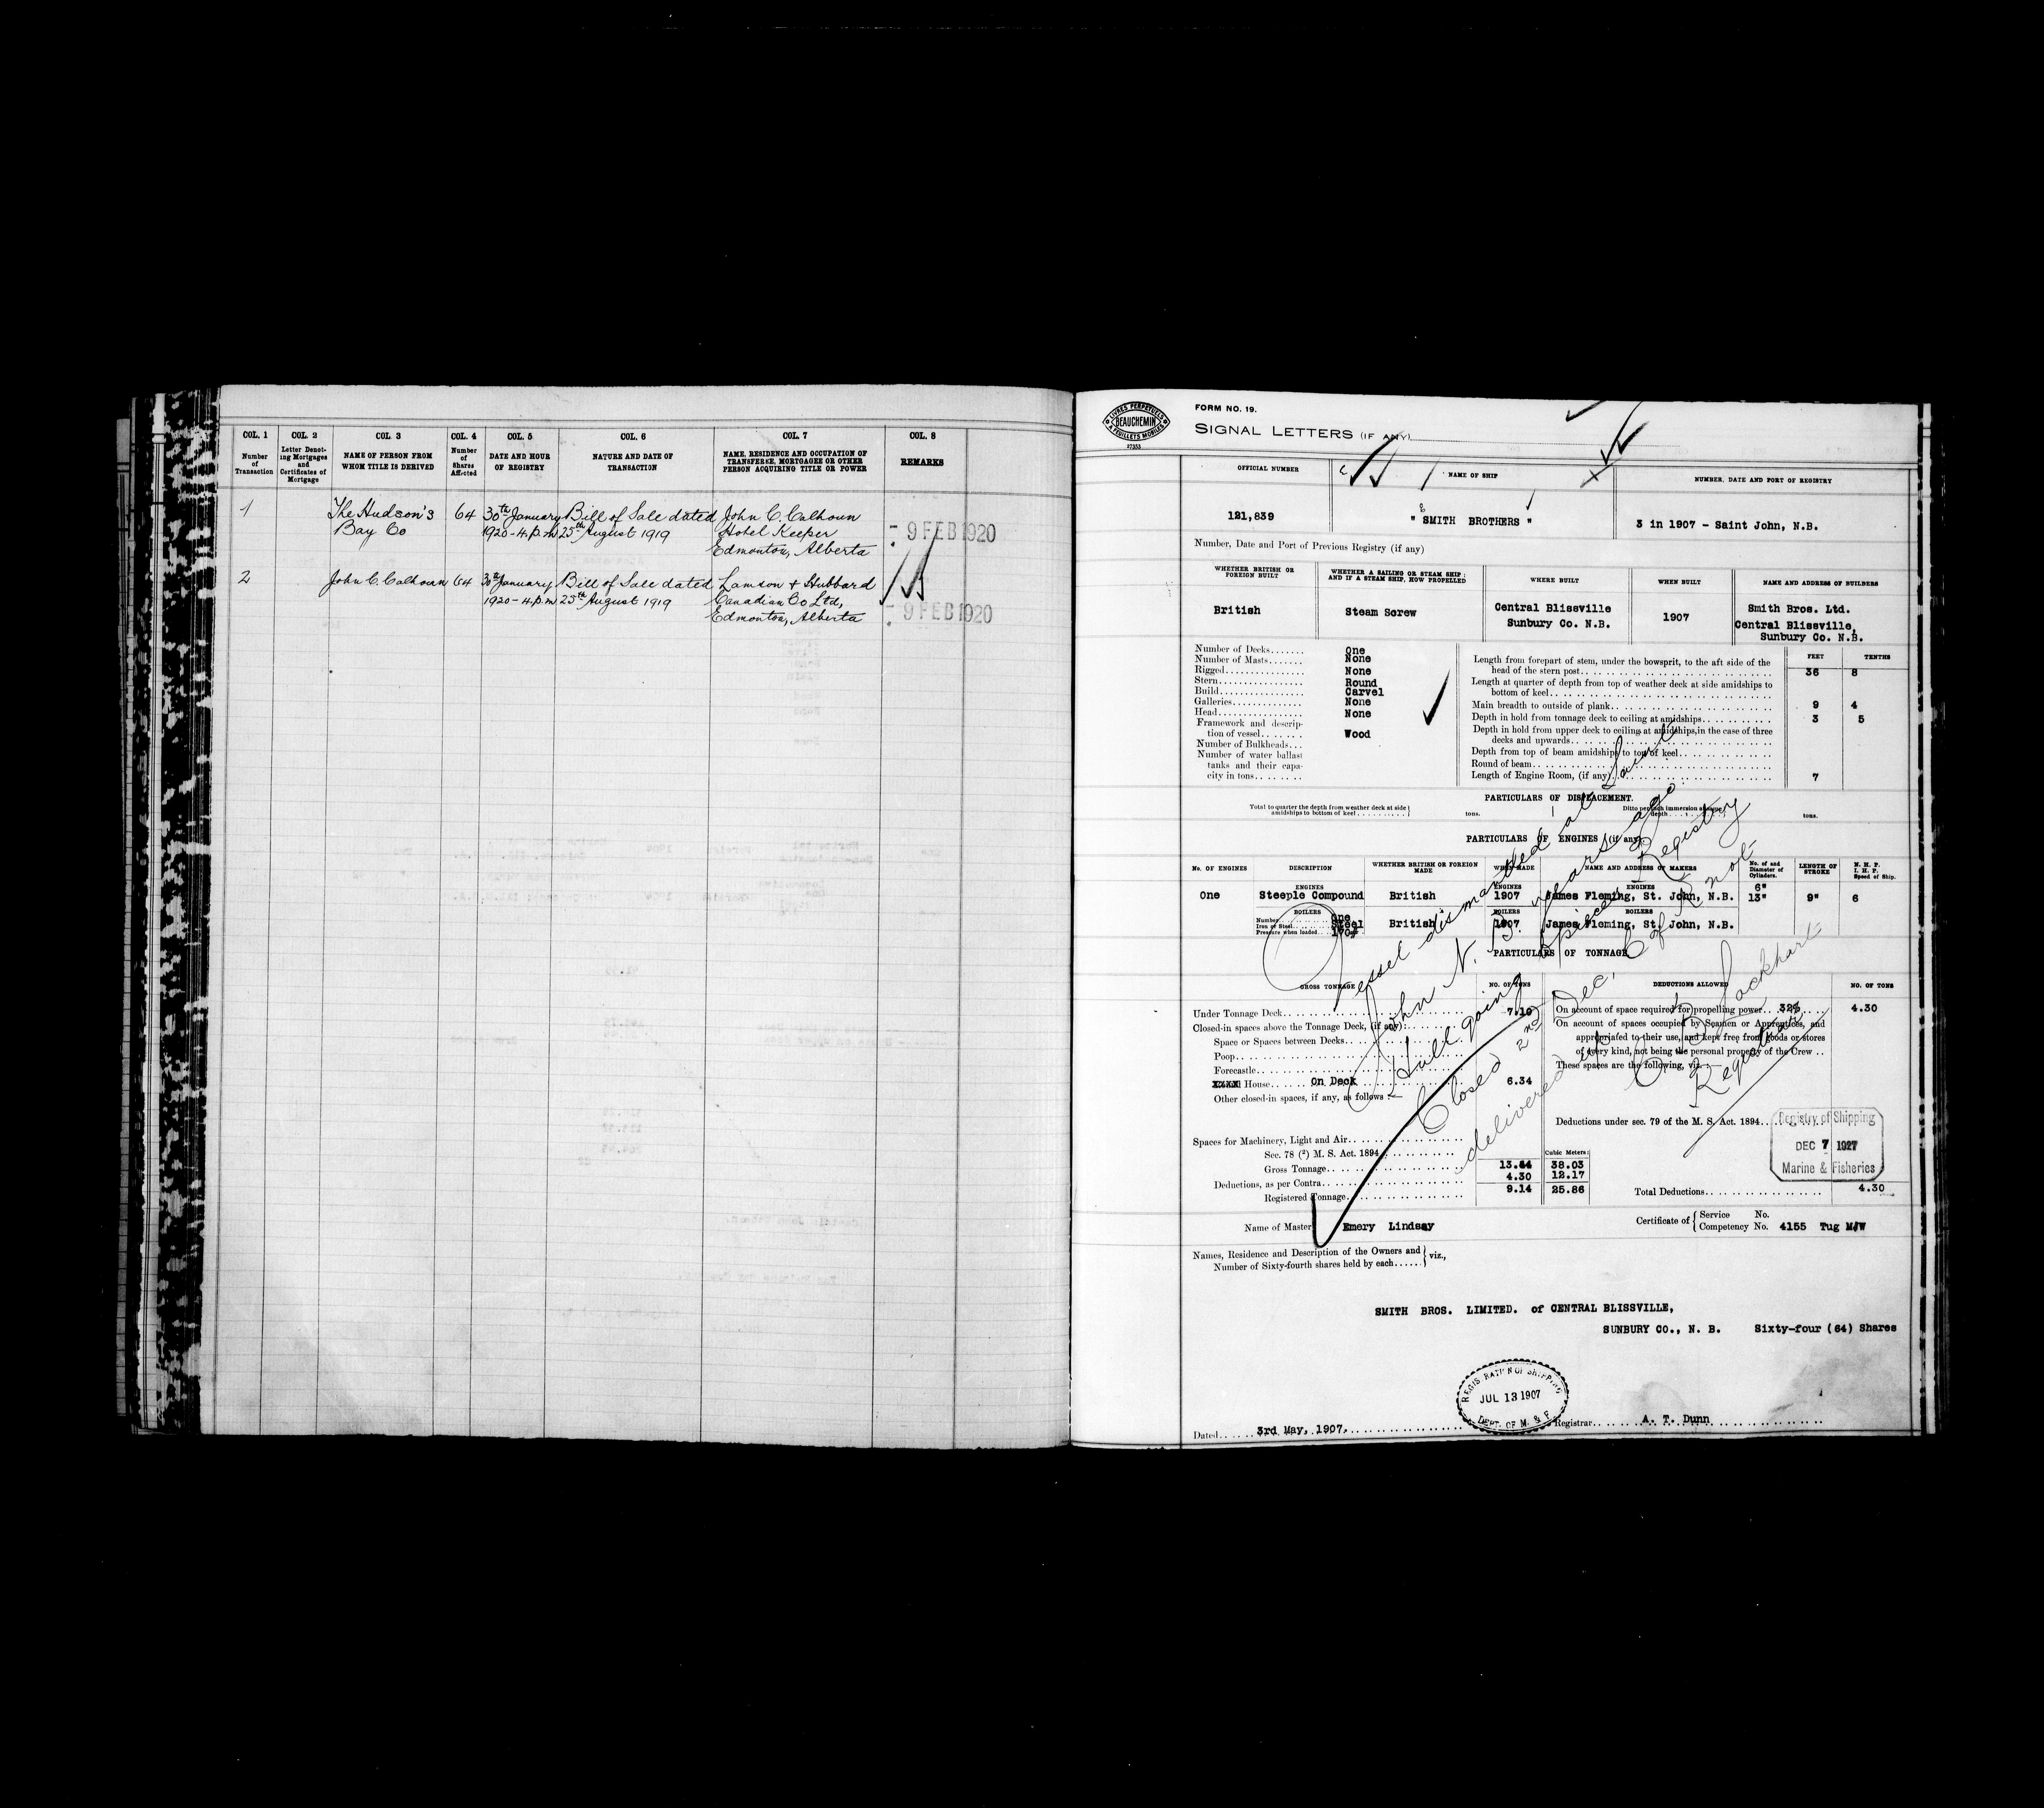 COL. 1
Number
of
Transaction
COL. 2
Letter Denot-
ing Mortgages
and
Certificates of
Mortgage
COL. 3
NAME OF PERSON FROM
WHOM TITLE IS DERIVED
COL. 4
Number
of
Shares
Affected
COL. 5
DATE AND HOUR
OF REGISTRY
COL. 6
NATURE AND DATE OF
TRANSACTION
COL. 7
NAME, RESIDENCE AND OCCUPATION OF
TRANSFEREE, MORTGAGEE OR OTHER
PERSON ACQUIRING TITLE OR POWER
COL. 8
REMARKS
1 The Hudson's 64 30th January Bill of Sale dated John C. Calhoun
Bay Co 1920-4.p.m 25th August 1919 Hotel Keeper
Edmonton, Alberta
- 9 FEB 1920
2 John C. Calhoun 64 30th January Bill of Sale dated Lamson & Hubbard
1920-4.p.m 25th August 1919 Canadian Co Ltd,
Edmonton, Alberta
- 9 FEB 1920
LIVRES PERPETUELS
BEAUCHEMIN
A FEUILLETS MOBILES
FORM NO. 19.
SIGNAL LETTERS (IF ANY)
OFFICIAL NUMBER
NAME OF SHIP
NUMBER, DATE AND PORT OF REGISTRY
121,839
" SMITH BROTHERS "
3 in 1907 - Saint John, N.B.
Number, Date and Port of Previous Registry (if any)
WHETHER BRITISH OR
FOREIGN BUILT
WHETHER A SAILING OR STEAM SHIP;
AND IF A STEAM SHIP, HOW PROPELLED
WHERE BUILT
WHEN BUILT
NAME AND ADDRESS OF BUILDERS
British
Steam Screw
Central Blissville
Sunbury Co. N.B.
1907
Smith Bros. Ltd.
Central Blissville,
Sunbury Co. N.B.
Number of Decks....... One
Number of Masts....... None
Rigged................ None
Stern................. Round
Build................. Carvel
Galleries............. None
Head.................. None
Framework and descrip-
tion of vessel....... Wood
Number of Bulkheads...
Number of water ballast
tanks and their capa-
city in tons........
FEET TENTHS
Length from forepart of stem, under the bowsprit, to the aft side of the
head of the stern post........ 36 8
Length at quarter of depth from top of weather deck at side amidships to
bottom of keel........
Main breadth to outside of plank........ 9 4
Depth in hold from tonnage deck to ceiling at amidships........ 3 5
Depth in hold from upper deck to ceiling at amidships, in the case of three
decks and upwards........
Depth from top of beam amidships to top of keel........
Round of beam........
Length of Engine Room, (if any)........ 7
PARTICULARS OF DISPLACEMENT.
Total to quarter the depth from weather deck at side
amidships to bottom of keel........ tons.
Ditto per inch immersion at same
depth........ tons.
PARTICULARS OF ENGINES (if any)
No. OF ENGINES
DESCRIPTION
WHETHER BRITISH OR FOREIGN
MADE
WHEN MADE
NAME AND ADDRESS OF MAKERS
No. of and
Diameter of
Cylinders.
LENGTH OF
STROKE
N. H. P.
I. H. P.
Speed of Ship.
ENGINES ENGINES ENGINES
One Steeple Compound British 1907 James Fleming, St. John, N.B. 6" 13" 9" 6
BOILERS BOILERS BOILERS
Number........ One
Iron or Steel........ Steel
Pressure when loaded....
British 1907 James Fleming, St. John, N.B.
PARTICULARS OF TONNAGE
GROSS TONNAGE
NO. OF TONS
DEDUCTIONS ALLOWED
NO. OF TONS
Under Tonnage Deck........ 7.10
Closed-in spaces above the Tonnage Deck, (if any):
Space or Spaces between Decks........
Poop........
Forecastle........
House...... On Deck ........ 6.34
Other closed-in spaces, if any, as follows :—
Spaces for Machinery, Light and Air........
Sec. 78 (2) M. S. Act. 1894........
Cubic Meters:
Gross Tonnage........ 13.44 38.03
Deductions, as per Contra........ 4.30 12.17
Registered Tonnage........ 9.14 25.86
On account of space required for propelling power.. 32% 4.30
On account of spaces occupied by Seamen or Apprentices, and
appropriated to their use, and kept free from goods or stores
of every kind, not being the personal property of the Crew ..
These spaces are the following, viz.—
Deductions under sec. 79 of the M. S. Act. 1894....
Total Deductions........ 4.30
Vessel dismantled at Saint
John N. B. years ago.
Hull going to pieces - Registry
Closed 2nd Dec. C of R not
delivered up
C B Lockhart
Registrar
Registry of Shipping
DEC 7 1927
Marine & Fisheries
Name of Master Emery Lindsay
Certificate of Service No.
Competency No. 4155 Tug M/W
Names, Residence and Description of the Owners and
Number of Sixty-fourth shares held by each...... viz.,
SMITH BROS. LIMITED. of CENTRAL BLISSVILLE,
SUNBURY CO., N. B. Sixty-four (64) Shares
REGISTRATION OF SHIPPING
JUL 13 1907
DEPT. OF M. & F.
Dated...... 3rd May, 1907, ........ Registrar...... A. T. Dunn